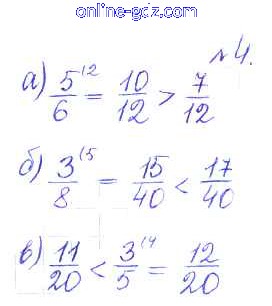 online-gdz.com
№4.
а) 5/6 ⁽² = 10/12 > 7/12
б) 3/8 ⁽⁵ = 15/40 < 17/40
в) 11/20 < 3/5 ⁽⁴ = 12/20